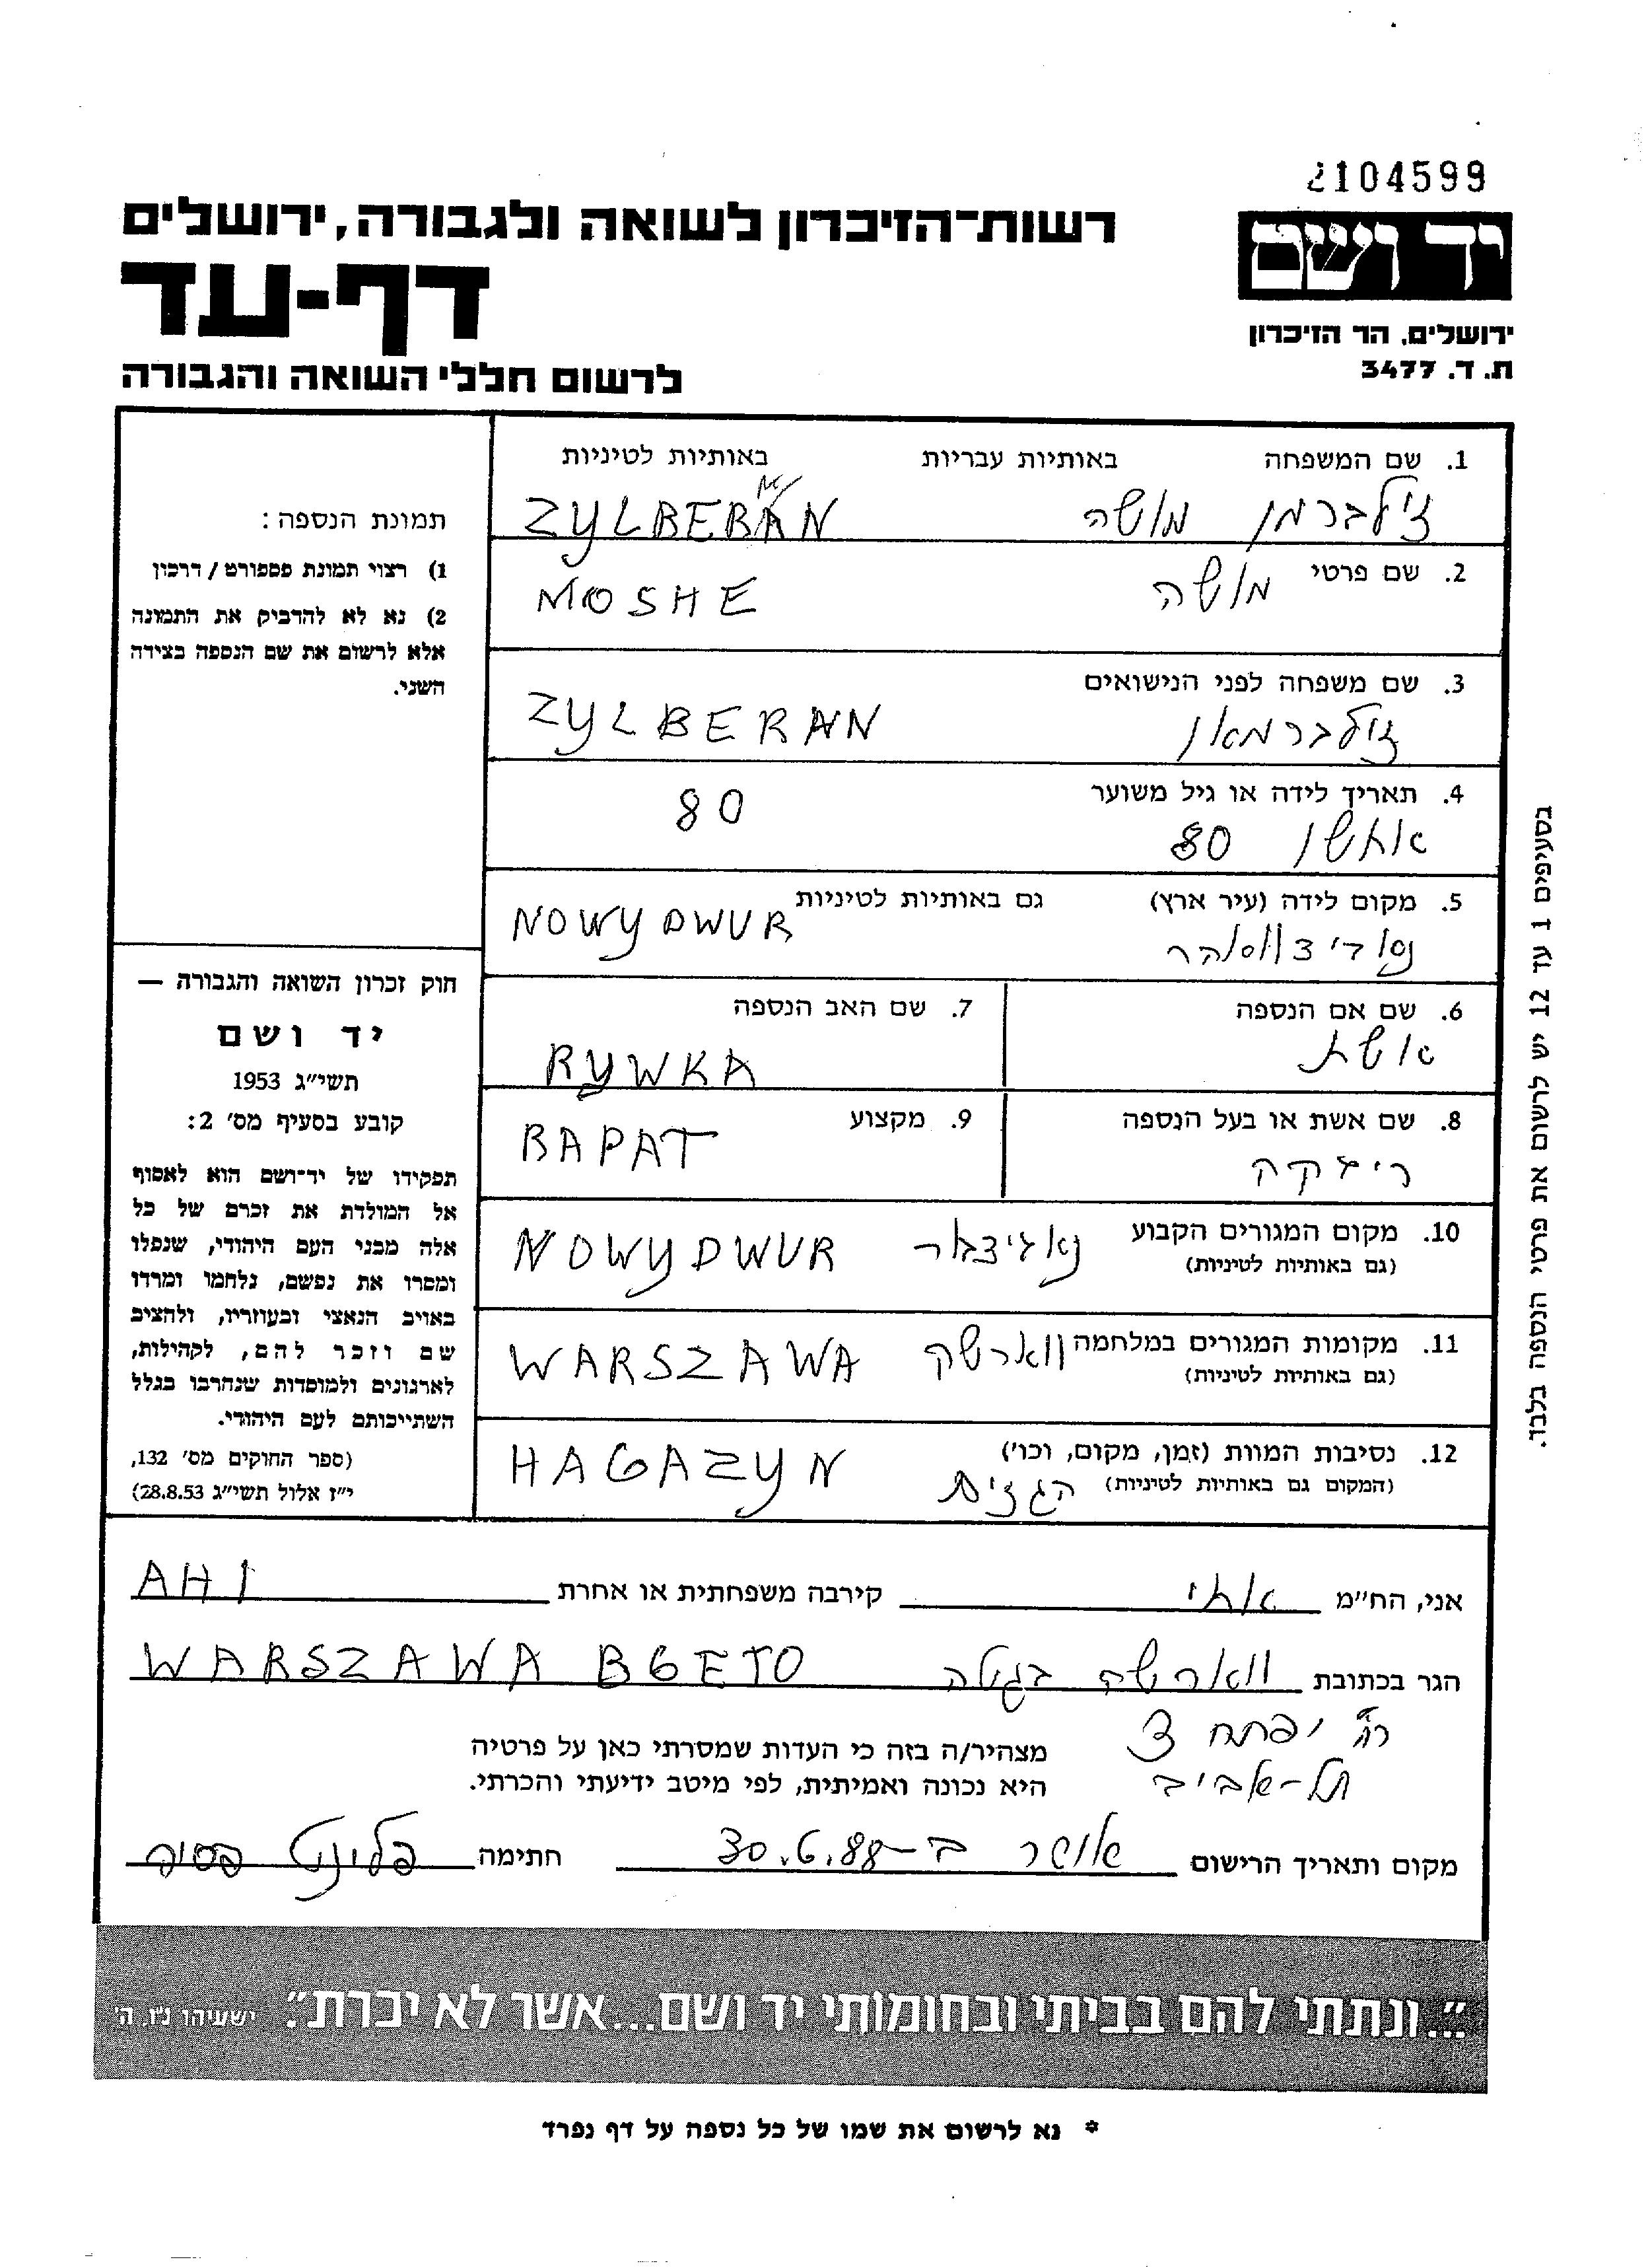 2104599
יד ושם
ירושלים, הר הזיכרון
ת. ד. 3477
רשות־הזיכרון לשואה ולגבורה, ירושלים
דף-עד
לרשום חללי השואה והגבורה
1. שם המשפחה באותיות עבריות באותיות לטיניות
זילברמן מושה ZYLBERAN
M
2. שם פרטי מושה MOSHE
3. שם משפחה לפני הנישואים
זילברמאן ZYLBERAN
4. תאריך לידה או גיל משוער
80 80
5. מקום לידה (עיר ארץ) גם באותיות לטיניות
NOWY DWUR
6. שם אם הנספה
7. שם האב הנספה
RYWKA
8. שם אשת או בעל הנספה
ריבקה
9. מקצוע
BAPAT
10. מקום המגורים הקבוע NOWYDWUR
(גם באותיות לטיניות)
11. מקומות המגורים במלחמה ווארשה WARSZAWA
(גם באותיות לטיניות)
12. נסיבות המוות (זמן, מקום, וכו')
(המקום גם באותיות לטיניות) HAGAZYN
תמונת הנספה:
1) רצוי תמונת פספורט / דרכון
2) נא לא להדביק את התמונה
אלא לרשום את שם הנספה בצידה
השני.
חוק זכרון השואה והגבורה —
יד ושם
תשי"ג 1953
קובע בסעיף מס' 2:
תפקידו של יד־ושם הוא לאסוף
אל המולדת את זכרם של כל
אלה מבני העם היהודי, שנפלו
ומסרו את נפשם, נלחמו ומרדו
באויב הנאצי ובעוזריו, ולהציב
שם וזכר להם, לקהילות,
לארגונים ולמוסדות שנחרבו בגלל
השתייכותם לעם היהודי.
(ספר החוקים מס' 132,
י"ז אלול תשי"ג 28.8.53)
בסעיפים 1 עד 12 יש לרשום את פרטי הנספה בלבד.
אני, הח"מ אחי קירבה משפחתית או אחרת AHI
הגר בכתובת ווארשה בגטה WARSZAWA BGETO
תל-אביב
מצהיר/ה בזה כי העדות שמסרתי כאן על פרטיה
היא נכונה ואמיתית, לפי מיטב ידיעתי והכרתי.
מקום ותאריך הרישום ב-30.6.88 חתימה
"...ונתתי להם בביתי ובחומותי יד ושם...אשר לא יכרת". ישעיהו נ"ו, ה'
* נא לרשום את שמו של כל נספה על דף נפרד